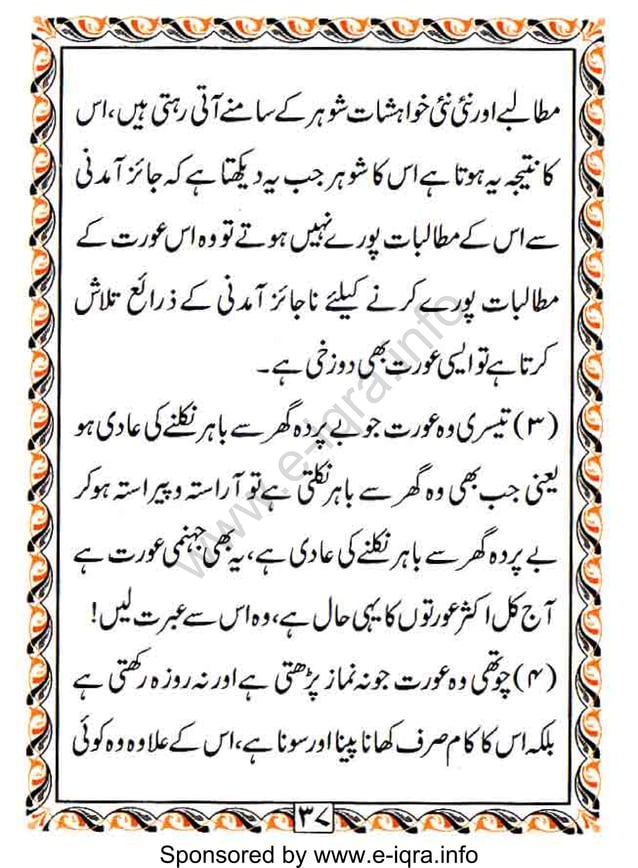 مطالبے اور نئی نئی خواہشات شوہر کے سامنے آتی رہتی ہیں، اس
کا نتیجہ یہ ہوتا ہے اس کا شوہر جب یہ دیکھتا ہے کہ جائز آمدنی
سے اس کے مطالبات پورے نہیں ہوتے تو وہ اس عورت کے
مطالبات پورے کرنے کیلئے ناجائز آمدنی کے ذرائع تلاش
کرتا ہے تو ایسی عورت بھی دوزخی ہے۔
(۳) تیسری وہ عورت جو بے پردہ گھر سے باہر نکلنے کی عادی ہو
یعنی جب بھی وہ گھر سے باہر نکلتی ہے تو آراستہ و پیراستہ ہو کر
بے پردہ گھر سے باہر نکلنے کی عادی ہے، یہ بھی جہنمی عورت ہے
آج کل اکثر عورتوں کا یہی حال ہے، وہ اس سے عبرت لیں!
(۴) چوتھی وہ عورت جو نہ نماز پڑھتی ہے اور نہ روزہ رکھتی ہے
بلکہ اس کا کام صرف کھانا پینا اور سونا ہے، اس کے علاوہ وہ کوئی
۳۷
www.e-iqra.info
Sponsored by www.e-iqra.info